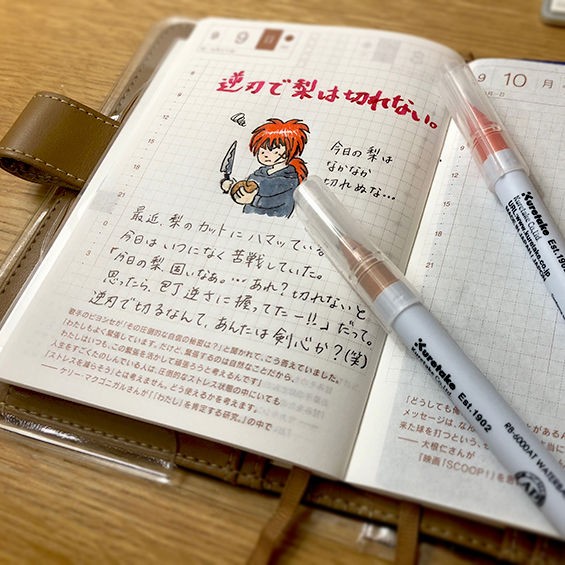 9
日
逆刃で梨は切れない。
今日の梨は
なかなか
切れぬな…
最近、梨のカットにハマッている。
今日はいつになく苦戦していた。
「今日の梨、固いなあ。… あれ? 切れないと
思ったら、包丁逆さに握ってたー!!」だって。
逆刃で切るなんて、あんたは剣心か?(笑)
歌手のビヨンセが「その圧倒的な自信の秘密は?」と聞かれて、こう答えていました。
「わたしもよく緊張しています。だけど、緊張するのは自然なことだから、
わたしはいつも、この緊張を活かして頑張ろうと考えるんです」
人生をすごくたのしんでいる人は、圧倒的なストレス状態の中にいても
「ストレスを減らそう」とは考えません。どう使えるかを考えます。
—— ケリー・マクゴニガルさんが『「わたし」を肯定する研究。』の中で
12
15
18
21
0
3
9 10 月
「どうしても
メッセージは、なん
来た球を打つという、
—— 大根仁さんが
「映画『SCOOP!』を
Kuretake Est.1902
Kuretake Co.,Ltd.
URL:www.kuretake.co.jp
Kuretake Est.1902
Kuretake Co.,Ltd.
RB-6000AT WATERBA